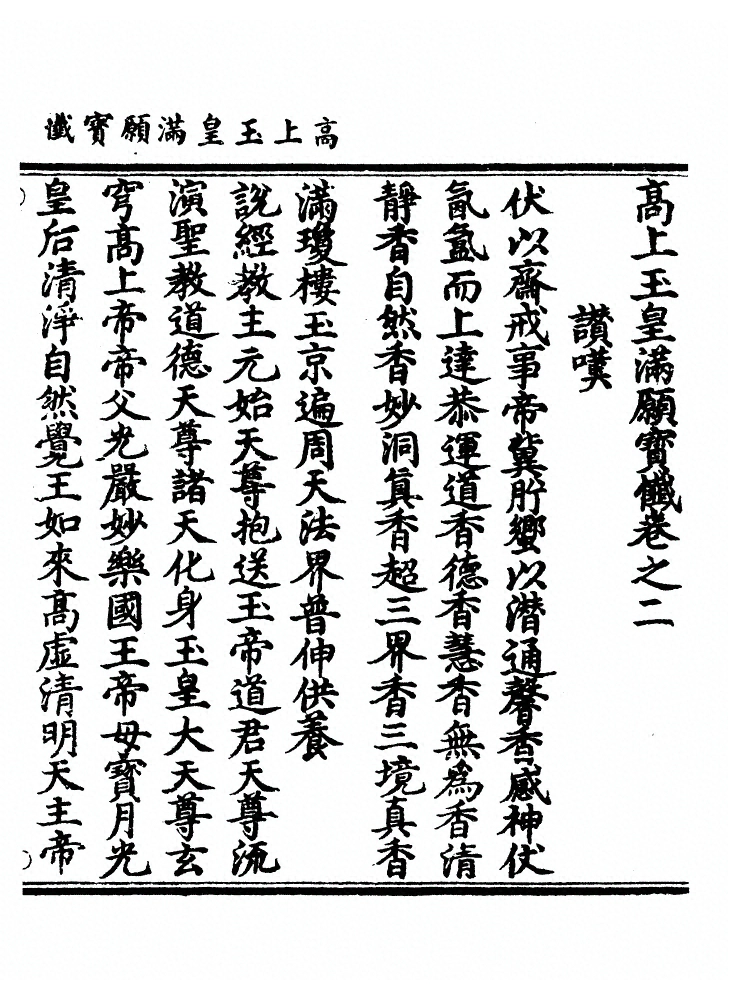 高上玉皇滿願寶懺
高上玉皇滿願寶懺卷之二
讚嘆
伏以齋戒事帝冀肹蠁以潜通馨香感神仗
氤氳而上達恭運道香德香慧香無爲香清
靜香自然香妙洞真香超三界香三境真香
滿瓊樓玉京遍周天法界普伸供養
說經教主元始天尊抱送玉帝道君天尊流
演聖教道德天尊諸天化身玉皇大天尊玄
穹高上帝帝父光嚴妙樂國王帝母寶月光
皇后清淨自然覺王如來高虛清明天主帝